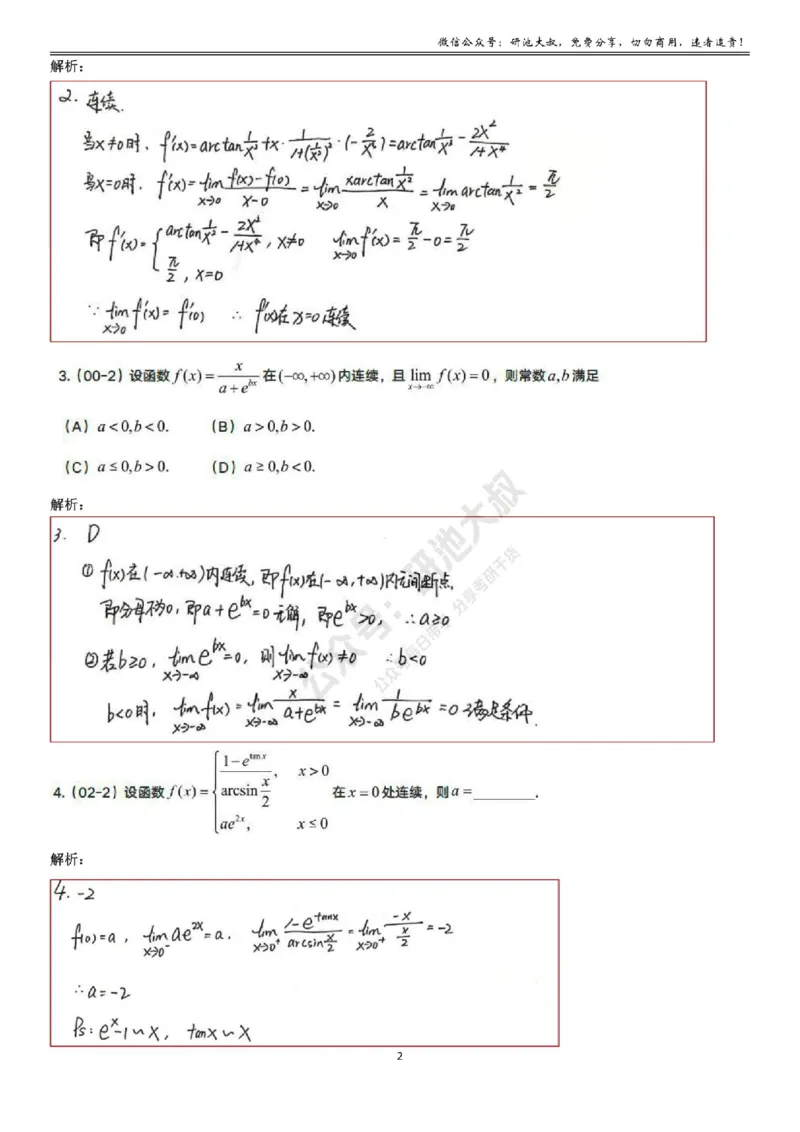 微信公众号：研池大叔，免费分享，切勿商用，违者追责！
解析：
2. 连续.
当x≠0时，f'(x)=arctan 1/x² + x· 1/(1+(1/x²)²) ·(-2/x³)=arctan 1/x² - 2x²/(1+x⁴)
当x=0时，f'(x)=lim(x→0) (f(x)-f(0))/(x-0) = lim(x→0) (x arctan 1/x²)/x = lim(x→0) arctan 1/x² = π/2
即f'(x)={arctan 1/x² - 2x²/(1+x⁴), x≠0 lim(x→0) f'(x)= π/2 -0= π/2
π/2, x=0
∵ lim(x→0) f'(x)= f'(0) ∴ f'(x)在x=0连续
3.（00-2）设函数 f(x)= x/(a+e^{bx}) 在(−∞,+∞)内连续，且 lim(x→−∞) f(x)=0，则常数a,b满足
（A） a<0,b<0. （B） a>0,b>0.
（C） a≤0,b>0. （D） a≥0,b<0.
解析：
3. D
① f(x)在(-∞,+∞)内连续，即f(x)在(-∞,+∞)内无间断点.
即分母不为0，即a+e^{bx}=0无解，即e^{bx}>0，∴a≥0
②若b≥0，lim(x→-∞) e^{bx}=0，则lim(x→-∞) f(x)≠0 ∴b<0
b<0时，lim(x→-∞) f(x)= lim(x→-∞) x/(a+e^{bx}) = lim(x→-∞) 1/(be^{bx}) =0 满足条件.
4.（02-2）设函数 f(x)={(1−e^{tan x})/(arcsin x/2), x>0 在x=0处连续，则a=________.
ae^{2x}, x≤0
解析：
4. -2
f(0)=a，lim(x→0⁻) ae^{2x}=a. lim(x→0⁺) (1-e^{tanx})/(arcsin x/2) = lim(x→0⁺) (-x)/(x/2) =-2
∴a=-2
Ps: e^x-1∽x, tanx∽x
2
公众号：研池大叔
公众号每日带你分享考研干货